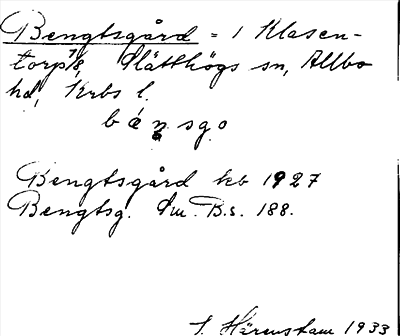 Bengtsgård = 1 Klasen-
torp 7/8, Slätthögs sn, Allbo
hd, Krbs l.
bæ̀nsgo
Bengtsgård kb 1927
Bengtsg. Sm. B.s. 188.
S. Härenstam 1933